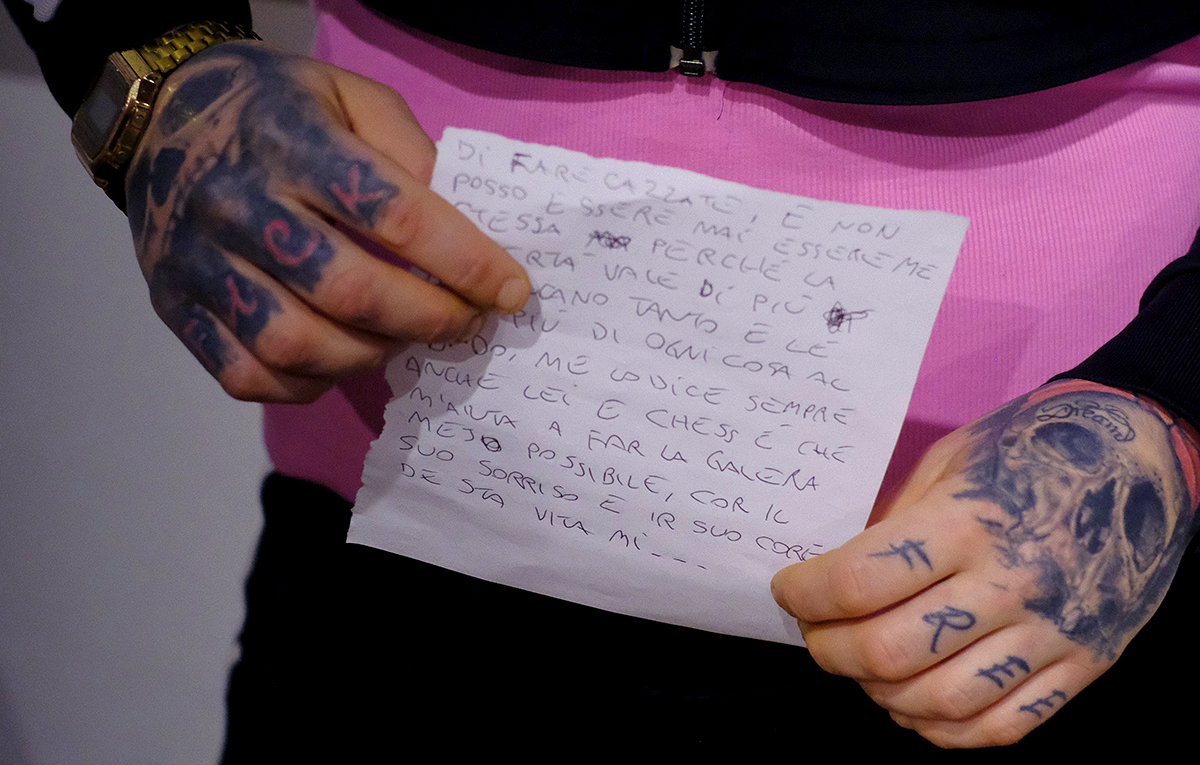 DI FARE CAZZATE, E NON
POSSO ESSERE MAI ESSERE ME
STESSA PERCHÉ LA
ERTÀ VALE DI PIÙ
CANO TANTO E LE
PIÙ DI OGNI COSA AL
DO, ME LO DICE SEMPRE
ANCHE LEI E CHESS É CHE
M'AIUTA A FAR LA GALERA
MEJO POSSIBILE, COR IL
SUO SORRISO E IR SUO CORE
DE STA VITA MI---
Dream
FREE